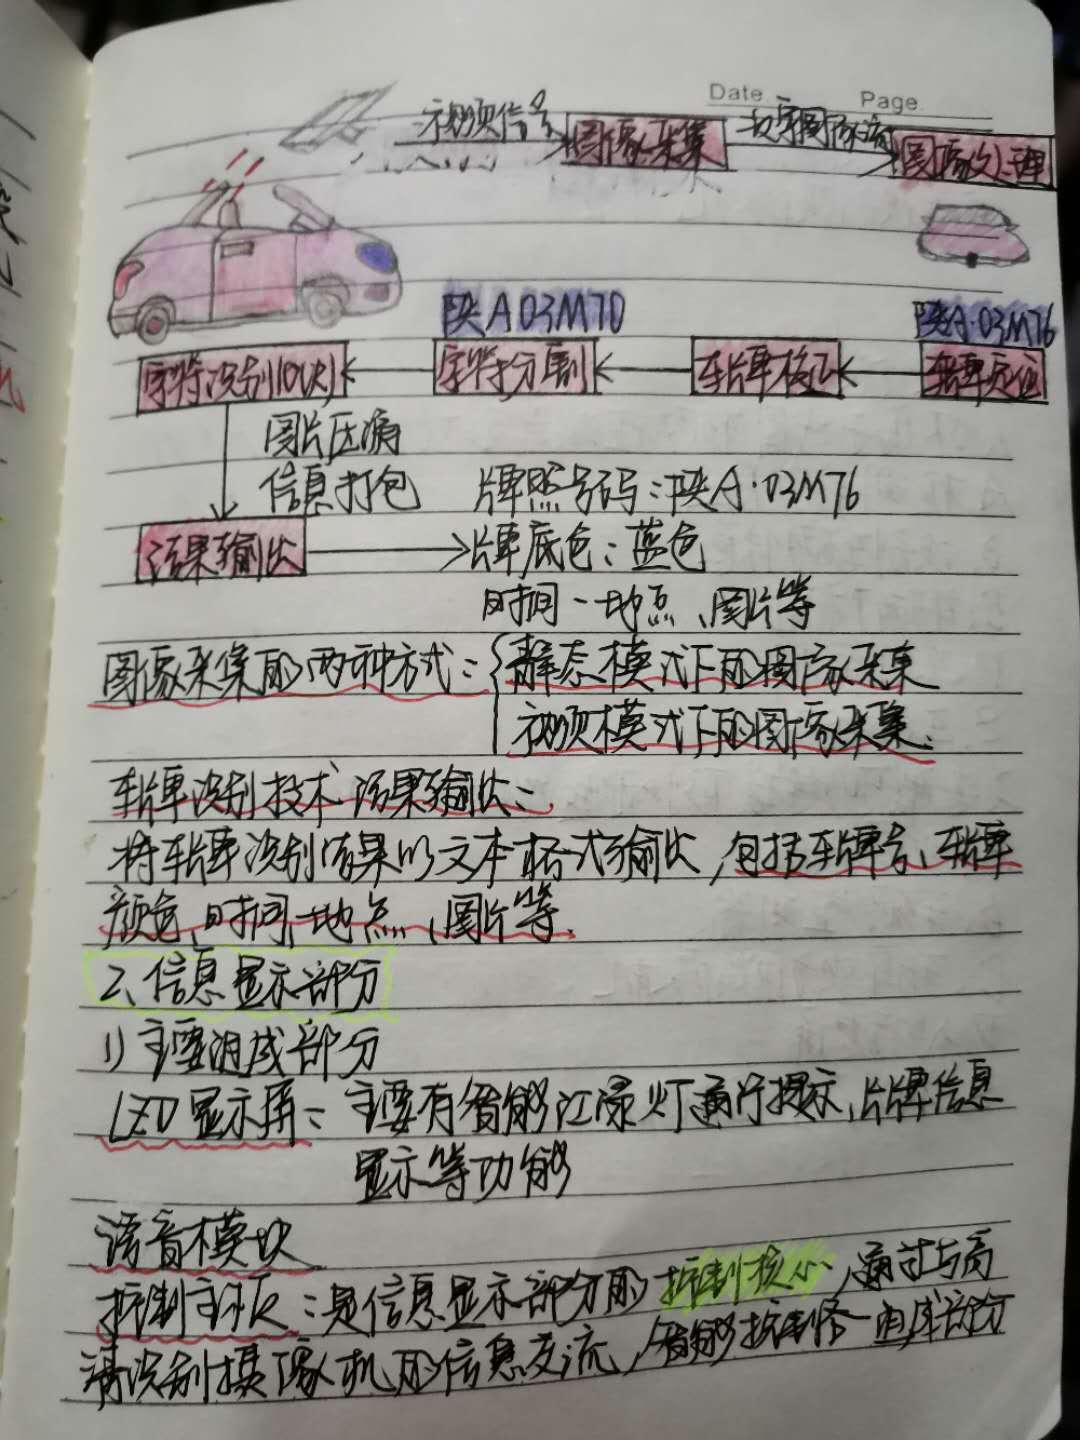 Date Page
视频信号 图像采集 图像处理
陕A03M70 陕A·03M76
字符识别(OCR) 字符分割 车牌校正 车牌定位
图片压缩
信息打包 牌照号码:陕A·03M76
结果输出 牌底色:蓝色
时间、地点、图片等
图像采集的两种方式:静态模式下的图像采集
视频模式下的图像采集.
车牌识别技术结果输出:
将车牌识别结果以文本格式输出,包括车牌号、车牌
颜色、时间、地点、图片等.
2、信息显示部分
1)主要组成部分
LED显示屏:主要有智能红绿灯通行提示、片牌信息
显示等功能
语音模块
控制主板:是信息显示部分的控制核心,通过与高
清识别摄像机的信息交流,智能控制各组成部分